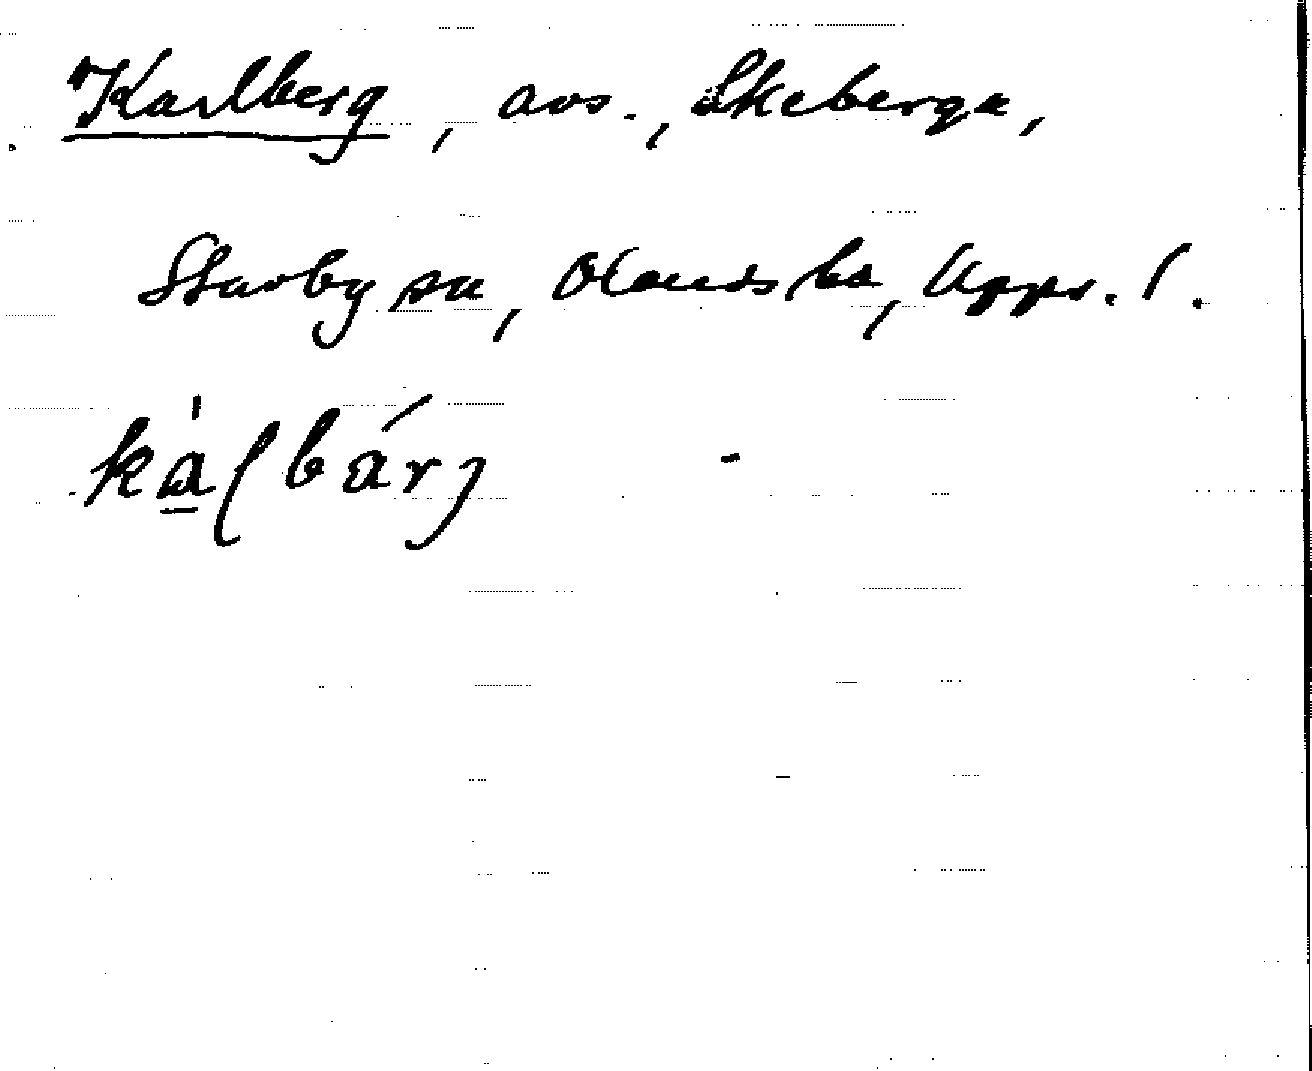 Karlberg, avs., Skeberga,
Starby sn, Olands hd, Upps. l.
kàlbárj